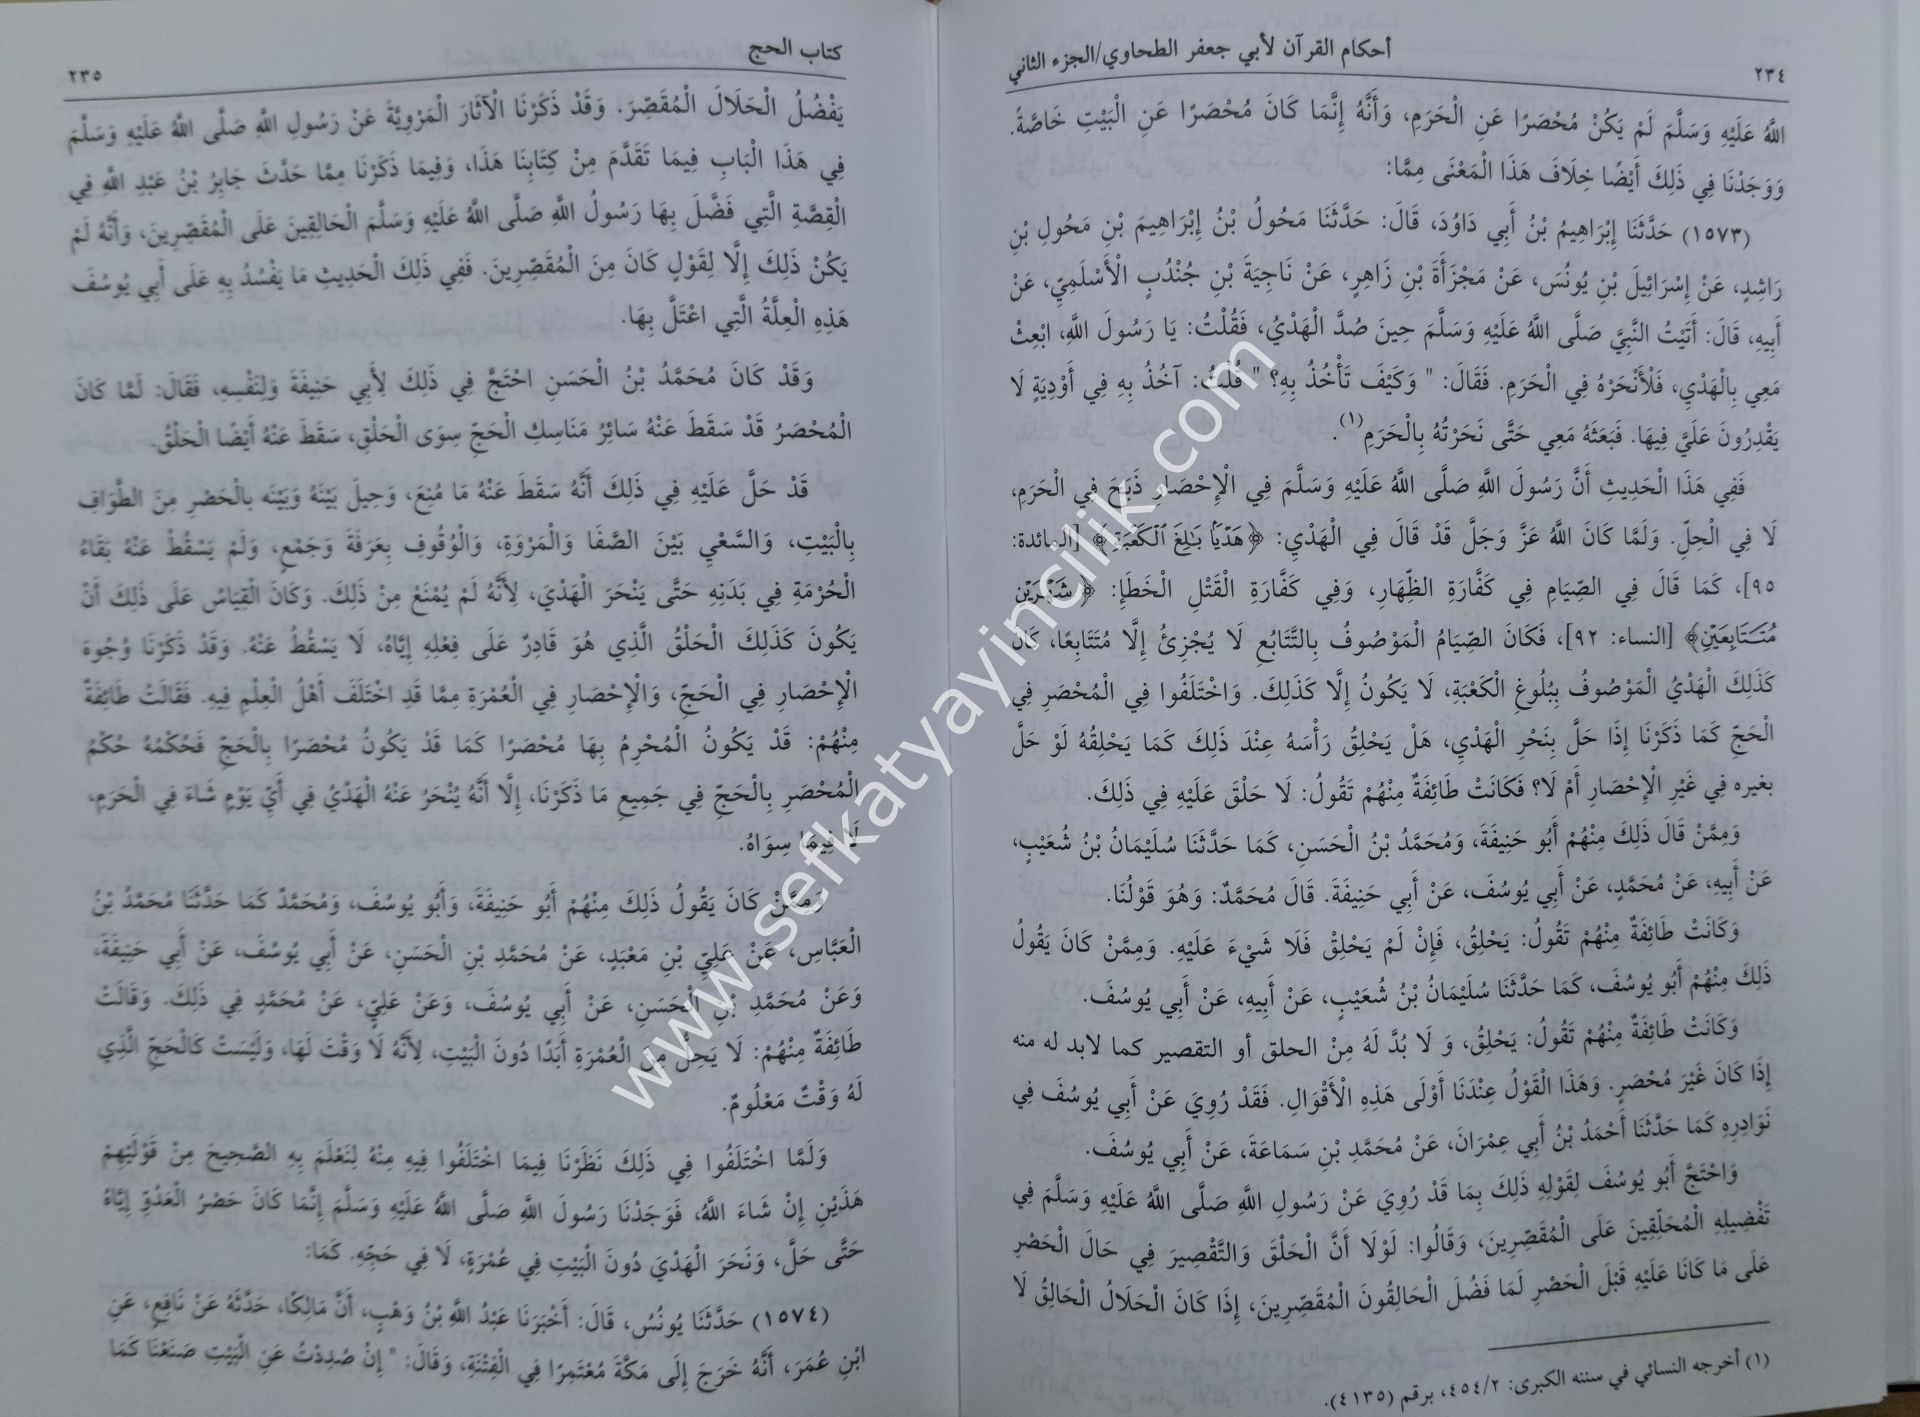 ٢٣٤
أحكام القرآن لأبي جعفر الطحاوي/الجزء الثاني
اللَّهُ عَلَيْهِ وَسَلَّمَ لَمْ يَكُنْ مُحْصَرًا عَنِ الْحَرَمِ، وَأَنَّهُ إِنَّمَا كَانَ مُحْصَرًا عَنِ الْبَيْتِ خَاصَّةً.
وَوَجَدْنَا فِي ذَلِكَ أَيْضًا خِلَافَ هَذَا الْمَعْنَى مِمَّا:
(١٥٧٣) حَدَّثَنَا إِبْرَاهِيمُ بْنُ أَبِي دَاوُدَ، قَالَ: حَدَّثَنَا مَخُولُ بْنُ إِبْرَاهِيمَ بْنِ مَخُولِ بْنِ
رَاشِدٍ، عَنْ إِسْرَائِيلَ بْنِ يُونُسَ، عَنْ مَجْزَأَةَ بْنِ زَاهِرٍ، عَنْ نَاجِيَةَ بْنِ جُنْدُبٍ الْأَسْلَمِيِّ، عَنْ
أَبِيهِ، قَالَ: أَتَيْتُ النَّبِيَّ صَلَّى اللَّهُ عَلَيْهِ وَسَلَّمَ حِينَ صُدَّ الْهَدْيُ، فَقُلْتُ: يَا رَسُولَ اللَّهِ، ابْعَثْ
مَعِي بِالْهَدْيِ، فَلْأَنْحَرْهُ فِي الْحَرَمِ. فَقَالَ: " وَكَيْفَ تَأْخُذُ بِهِ؟ " قُلْتُ: آخُذُ بِهِ فِي أَوْدِيَةٍ لَا
يَقْدِرُونَ عَلَيَّ فِيهَا. فَبَعَثَهُ مَعِي حَتَّى نَحَرْتُهُ بِالْحَرَمِ(١).
فَفِي هَذَا الْحَدِيثِ أَنَّ رَسُولَ اللَّهِ صَلَّى اللَّهُ عَلَيْهِ وَسَلَّمَ فِي الْإِحْصَارِ ذَبَحَ فِي الْحَرَمِ،
لَا فِي الْحِلِّ. وَلَمَّا كَانَ اللَّهُ عَزَّ وَجَلَّ قَدْ قَالَ فِي الْهَدْيِ: ﴿هَدْيًا بَالِغَ الْكَعْبَةِ﴾ [المائدة:
٩٥]، كَمَا قَالَ فِي الصِّيَامِ فِي كَفَّارَةِ الظِّهَارِ، وَفِي كَفَّارَةِ الْقَتْلِ الْخَطَإِ: ﴿شَهْرَيْنِ
مُتَتَابِعَيْنِ﴾ [النساء: ٩٢]، فَكَانَ الصِّيَامُ الْمَوْصُوفُ بِالتَّتَابُعِ لَا يُجْزِئُ إِلَّا مُتَتَابِعًا، كَانَ
كَذَلِكَ الْهَدْيُ الْمَوْصُوفُ بِبُلُوغِ الْكَعْبَةِ، لَا يَكُونُ إِلَّا كَذَلِكَ. وَاخْتَلَفُوا فِي الْمُحْصَرِ فِي
الْحَجِّ كَمَا ذَكَرْنَا إِذَا حَلَّ بِنَحْرِ الْهَدْيِ، هَلْ يَحْلِقُ رَأْسَهُ عِنْدَ ذَلِكَ كَمَا يَحْلِقُهُ لَوْ حَلَّ
بغيره فِي غَيْرِ الْإِحْصَارِ أَمْ لَا؟ فَكَانَتْ طَائِفَةٌ مِنْهُمْ تَقُولُ: لَا حَلْقَ عَلَيْهِ فِي ذَلِكَ.
وَمِمَّنْ قَالَ ذَلِكَ مِنْهُمْ أَبُو حَنِيفَةَ، وَمُحَمَّدُ بْنُ الْحَسَنِ، كَمَا حَدَّثَنَا سُلَيْمَانُ بْنُ شُعَيْبٍ،
عَنْ أَبِيهِ، عَنْ مُحَمَّدٍ، عَنْ أَبِي يُوسُفَ، عَنْ أَبِي حَنِيفَةَ. قَالَ مُحَمَّدٌ: وَهُوَ قَوْلُنَا.
وَكَانَتْ طَائِفَةٌ مِنْهُمْ تَقُولُ: يَحْلِقُ، فَإِنْ لَمْ يَحْلِقْ فَلَا شَيْءَ عَلَيْهِ. وَمِمَّنْ كَانَ يَقُولُ
ذَلِكَ مِنْهُمْ أَبُو يُوسُفَ، كَمَا حَدَّثَنَا سُلَيْمَانُ بْنُ شُعَيْبٍ، عَنْ أَبِيهِ، عَنْ أَبِي يُوسُفَ.
وَكَانَتْ طَائِفَةٌ مِنْهُمْ تَقُولُ: يَحْلِقُ، وَ لَا بُدَّ لَهُ مِنْ الحلق أو التقصير كما لابد له منه
إِذَا كَانَ غَيْرَ مُحْصَرٍ. وَهَذَا الْقَوْلُ عِنْدَنَا أَوْلَى هَذِهِ الْأَقْوَالِ. فَقَدْ رُوِيَ عَنْ أَبِي يُوسُفَ فِي
نَوَادِرِهِ كَمَا حَدَّثَنَا أَحْمَدُ بْنُ أَبِي عِمْرَانَ، عَنْ مُحَمَّدِ بْنِ سَمَاعَةَ، عَنْ أَبِي يُوسُفَ.
وَاحْتَجَّ أَبُو يُوسُفَ لِقَوْلِهِ ذَلِكَ بِمَا قَدْ رُوِيَ عَنْ رَسُولِ اللَّهِ صَلَّى اللَّهُ عَلَيْهِ وَسَلَّمَ فِي
تَفْضِيلِهِ الْمُحَلِّقِينَ عَلَى الْمُقَصِّرِينَ، وَقَالُوا: لَوْلَا أَنَّ الْحَلْقَ وَالتَّقْصِيرَ فِي حَالِ الْحَصْرِ
عَلَى مَا كَانَا عَلَيْهِ قَبْلَ الْحَصْرِ لَمَا فَضُلَ الْحَالِقُونَ الْمُقَصِّرِينَ، إِذَا كَانَ الْحَلَالُ الْحَالِقُ لَا
(١) أخرجه النسائي في سننه الكبرى: ٤٥٤/٢، برقم (٤١٣٥).
كتاب الحج
٢٣٥
يَفْضُلُ الْحَلَالَ الْمُقَصِّرَ. وَقَدْ ذَكَرْنَا الْآثَارَ الْمَرْوِيَّةَ عَنْ رَسُولِ اللَّهِ صَلَّى اللَّهُ عَلَيْهِ وَسَلَّمَ
فِي هَذَا الْبَابِ فِيمَا تَقَدَّمَ مِنْ كِتَابِنَا هَذَا، وَفِيمَا ذَكَرْنَا مِمَّا حَدَّثَ جَابِرُ بْنُ عَبْدِ اللَّهِ فِي
الْقِصَّةِ الَّتِي فَضَّلَ بِهَا رَسُولُ اللَّهِ صَلَّى اللَّهُ عَلَيْهِ وَسَلَّمَ الْحَالِقِينَ عَلَى الْمُقَصِّرِينَ، وَأَنَّهُ لَمْ
يَكُنْ ذَلِكَ إِلَّا لِقَوْلٍ كَانَ مِنَ الْمُقَصِّرِينَ. فَفِي ذَلِكَ الْحَدِيثِ مَا يَفْسُدُ بِهِ عَلَى أَبِي يُوسُفَ
هَذِهِ الْعِلَّةُ الَّتِي اعْتَلَّ بِهَا.
وَقَدْ كَانَ مُحَمَّدُ بْنُ الْحَسَنِ احْتَجَّ فِي ذَلِكَ لِأَبِي حَنِيفَةَ وَلِنَفْسِهِ، فَقَالَ: لَمَّا كَانَ
الْمُحْصَرُ قَدْ سَقَطَ عَنْهُ سَائِرُ مَنَاسِكِ الْحَجِّ سِوَى الْحَلْقِ، سَقَطَ عَنْهُ أَيْضًا الْحَلْقُ.
قَدْ حَلَّ عَلَيْهِ فِي ذَلِكَ أَنَّهُ سَقَطَ عَنْهُ مَا مُنِعَ، وَحِيلَ بَيْنَهُ وَبَيْنَه بالْحَصْرِ مِنَ الطَّوَافِ
بِالْبَيْتِ، وَالسَّعْيِ بَيْنَ الصَّفَا وَالْمَرْوَةِ، وَالْوُقُوفِ بِعَرَفَةَ وَجَمْعٍ، وَلَمْ يَسْقُطْ عَنْهُ بَقَاءُ
الْحُرْمَةِ فِي بَدَنِهِ حَتَّى يَنْحَرَ الْهَدْيَ، لِأَنَّهُ لَمْ يُمْنَعْ مِنْ ذَلِكَ. وَكَانَ الْقِيَاسُ عَلَى ذَلِكَ أَنْ
يَكُونَ كَذَلِكَ الْحَلْقُ الَّذِي هُوَ قَادِرٌ عَلَى فِعْلِهِ إِيَّاهُ، لَا يَسْقُطُ عَنْهُ. وَقَدْ ذَكَرْنَا وُجُوهَ
الْإِحْصَارِ فِي الْحَجِّ، وَالْإِحْصَارِ فِي الْعُمْرَةِ مِمَّا قَدِ اخْتَلَفَ أَهْلُ الْعِلْمِ فِيهِ. فَقَالَتْ طَائِفَةٌ
مِنْهُمْ: قَدْ يَكُونُ الْمُحْرِمُ بِهَا مُحْصَرًا كَمَا قَدْ يَكُونُ مُحْصَرًا بِالْحَجِّ فَحُكْمُهُ حُكْمُ
الْمُحْصَرِ بِالْحَجِّ فِي جَمِيعِ مَا ذَكَرْنَا، إِلَّا أَنَّهُ يُنْحَرُ عَنْهُ الْهَدْيُ فِي أَيِّ يَوْمٍ شَاءَ فِي الْحَرَمِ،
لَا فِيمَا سِوَاهُ.
وَمِمَّنْ كَانَ يَقُولُ ذَلِكَ مِنْهُمْ أَبُو حَنِيفَةَ، وَأَبُو يُوسُفَ، وَمُحَمَّدٌ كَمَا حَدَّثَنَا مُحَمَّدُ بْنُ
الْعَبَّاسِ، عَنْ عَلِيِّ بْنِ مَعْبَدٍ، عَنْ مُحَمَّدِ بْنِ الْحَسَنِ، عَنْ أَبِي يُوسُفَ، عَنْ أَبِي حَنِيفَةَ،
وَعَنْ مُحَمَّدِ بْنِ الْحَسَنِ، عَنْ أَبِي يُوسُفَ، وَعَنْ عَلِيٍّ، عَنْ مُحَمَّدٍ فِي ذَلِكَ. وَقَالَتْ
طَائِفَةٌ مِنْهُمْ: لَا يَحِلُّ مِنَ الْعُمْرَةِ أَبَدًا دُونَ الْبَيْتِ، لِأَنَّهُ لَا وَقْتَ لَهَا، وَلَيْسَتْ كَالْحَجِّ الَّذِي
لَهُ وَقْتٌ مَعْلُومٌ.
وَلَمَّا اخْتَلَفُوا فِي ذَلِكَ نَظَرْنَا فِيمَا اخْتَلَفُوا فِيهِ مِنْهُ لِنَعْلَمَ بِهِ الصَّحِيحَ مِنْ قَوْلَيْهِمْ
هَذَيْنِ إِنْ شَاءَ اللَّهُ، فَوَجَدْنَا رَسُولَ اللَّهِ صَلَّى اللَّهُ عَلَيْهِ وَسَلَّمَ إِنَّمَا كَانَ حَصْرُ الْعَدُوِّ إِيَّاهُ
حَتَّى حَلَّ، وَنَحَرَ الْهَدْيَ دُونَ الْبَيْتِ فِي عُمْرَةٍ، لَا فِي حَجِّهِ. كَمَا:
(١٥٧٤) حَدَّثَنَا يُونُسُ، قَالَ: أَخْبَرَنَا عَبْدُ اللَّهِ بْنُ وَهْبٍ، أَنَّ مَالِكًا، حَدَّثَهُ عَنْ نَافِعٍ، عَنِ
ابْنِ عُمَرَ، أَنَّهُ خَرَجَ إِلَى مَكَّةَ مُعْتَمِرًا فِي الْفِتْنَةِ، وَقَالَ: " إِنْ صُدِدْتُ عَنِ الْبَيْتِ صَنَعْنَا كَمَا
www.sefkatyayincilik.com